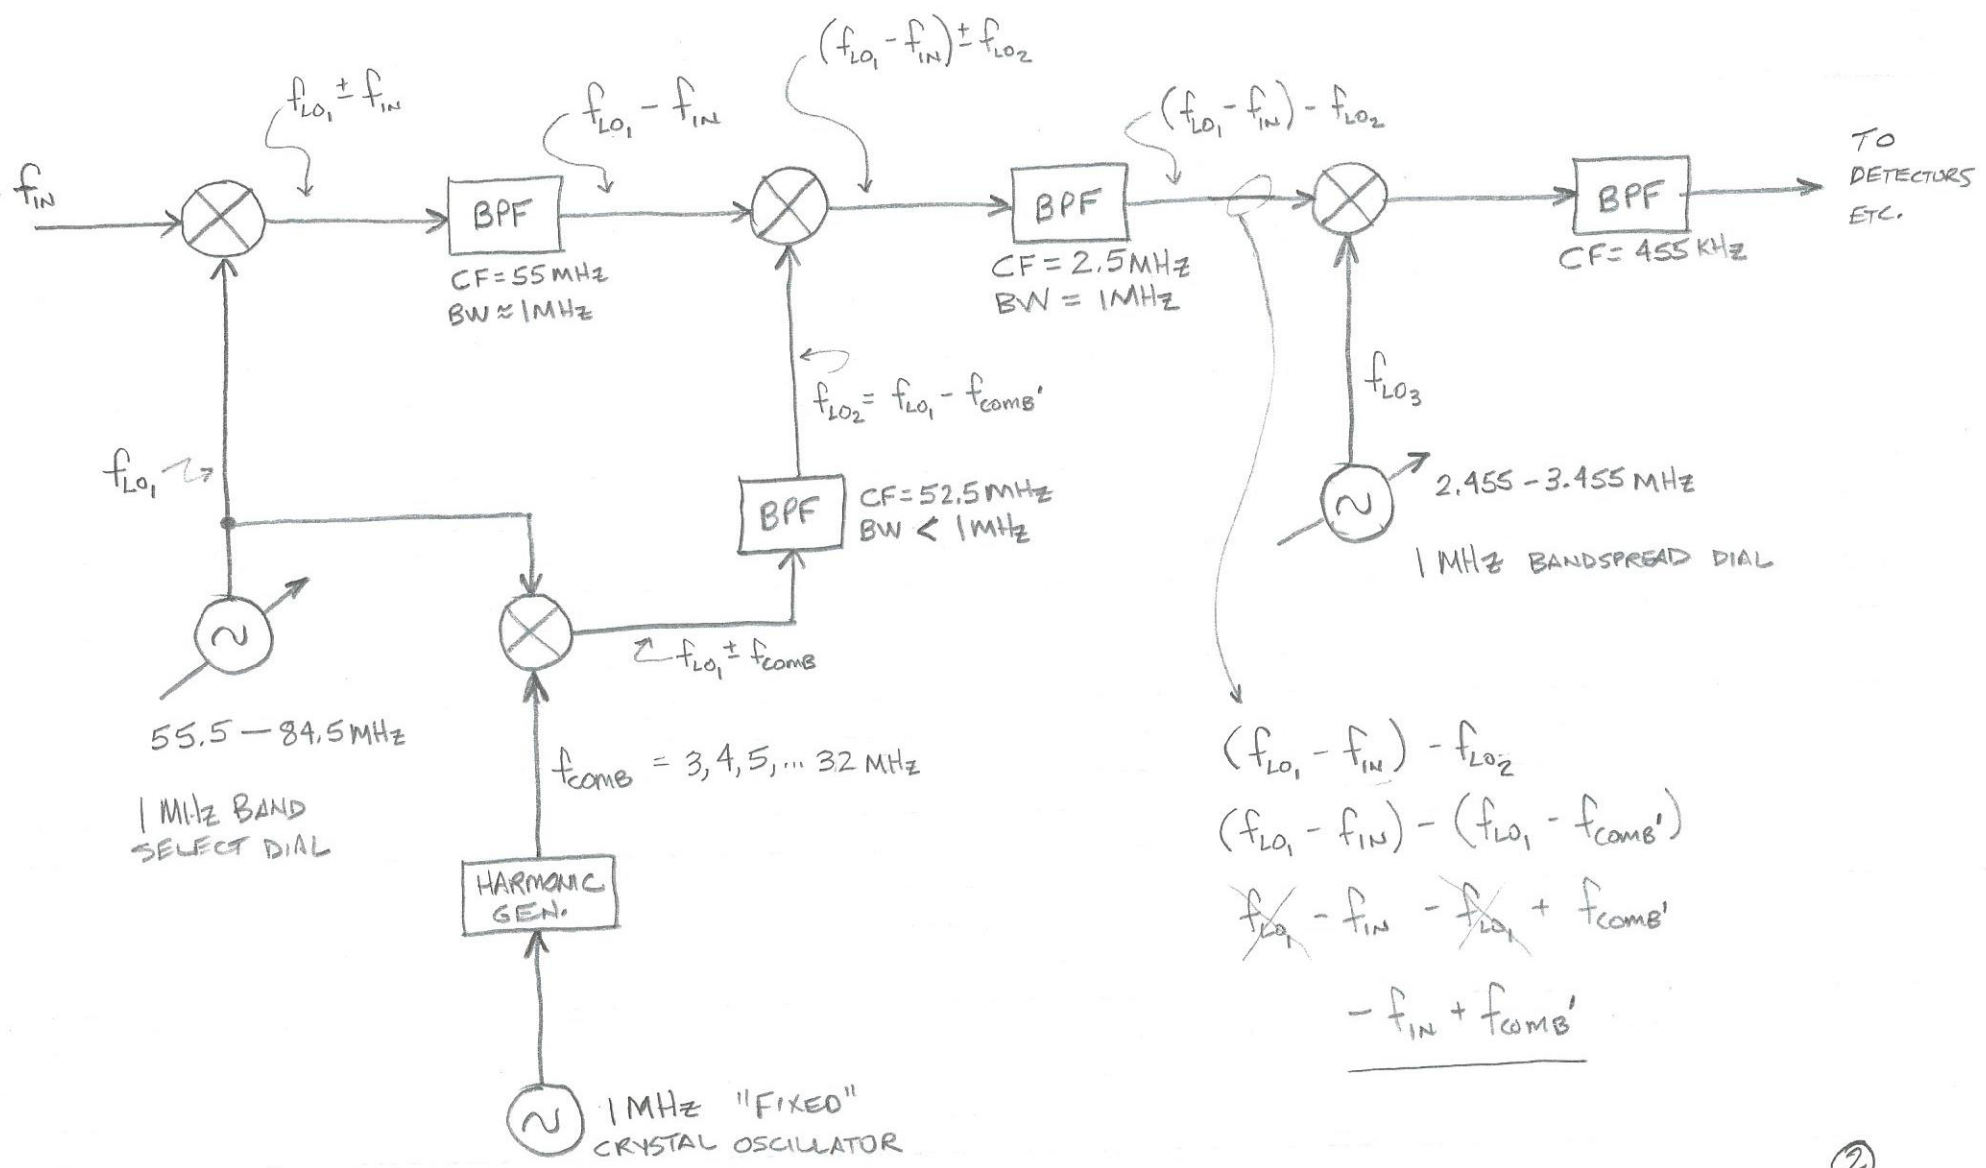 f_IN
f_LO1 ± f_IN
f_LO1 - f_IN
(f_LO1 - f_IN) ± f_LO2
(f_LO1 - f_IN) - f_LO2
TO
DETECTORS
ETC.
BPF
CF=55MHz
BW≈1MHz
BPF
CF=2.5MHz
BW = 1MHz
BPF
CF=455KHz
f_LO2 = f_LO1 - f_COMB'
f_LO3
f_LO1
BPF
CF=52.5MHz
BW < 1MHz
2.455-3.455MHz
1 MHz BANDSPREAD DIAL
~
~
f_LO1 ± f_COMB
55.5-84.5MHz
1 MHz BAND
SELECT DIAL
f_COMB = 3,4,5,... 32 MHz
HARMONIC
GEN.
~
1MHz "FIXED"
CRYSTAL OSCILLATOR
(f_LO1 - f_IN) - f_LO2
(f_LO1 - f_IN) - (f_LO1 - f_COMB')
f_LO1 - f_IN - f_LO1 + f_COMB'
- f_IN + f_COMB'
2